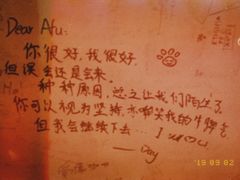 Dear Afu:
你很好,我很好.
但误会还是会来.
种种原因,总之让我们陌生了
你可以视为坚持,亦嘲笑我的牛脾气
但我会继续下去… I
— Joy
19 09 02